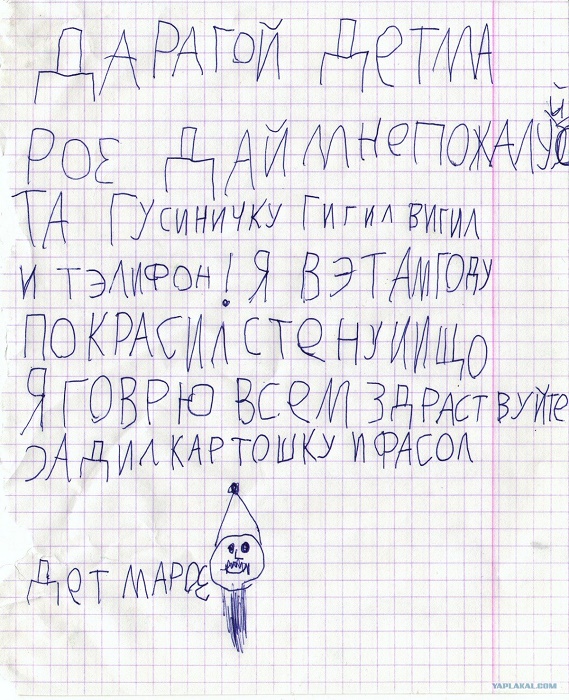 ДАРАГОЙ ДЕТМА
РОЗ ДАЙ МНЕ ПОЖАЛУЙ
ТА ГУСИНИЧКУ ГИГИЛ ВИГИЛ
И ТЭЛИФОН! Я В ЭТАМ ГОДУ
ПОКРАСИЛ СТЕНУ И ИЩО
Я ГОВРЮ ВСЕМ ЗДРАСТВУЙТЕ
ЭАДИЛ КАРТОШКУ И ФАСОЛ
ДЕТ МАРОЗ
YAPLAKAL.COM